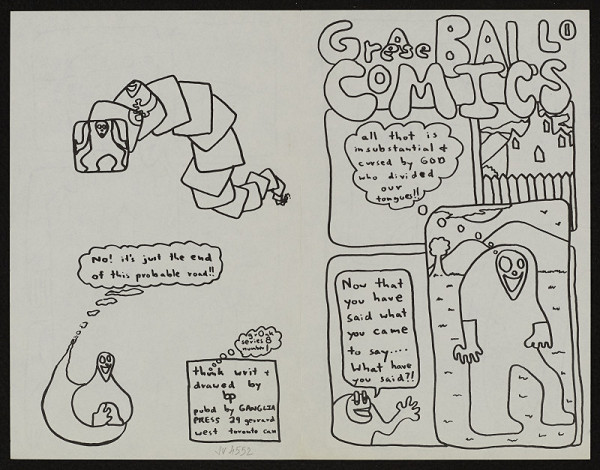 Grease BALL
COMICS
①
all that is
insubstantial &
cursed by GOD
who divided
our
tongues!!
Now that
you have
said what
you came
to say....
What have
you said?!
No! it's just the end
of this probable road!!
grOnk
series 8
number 1
think writ &
drawed by
bp
pubd by GANGLIA
PRESS 29 gerrard
west toronto can